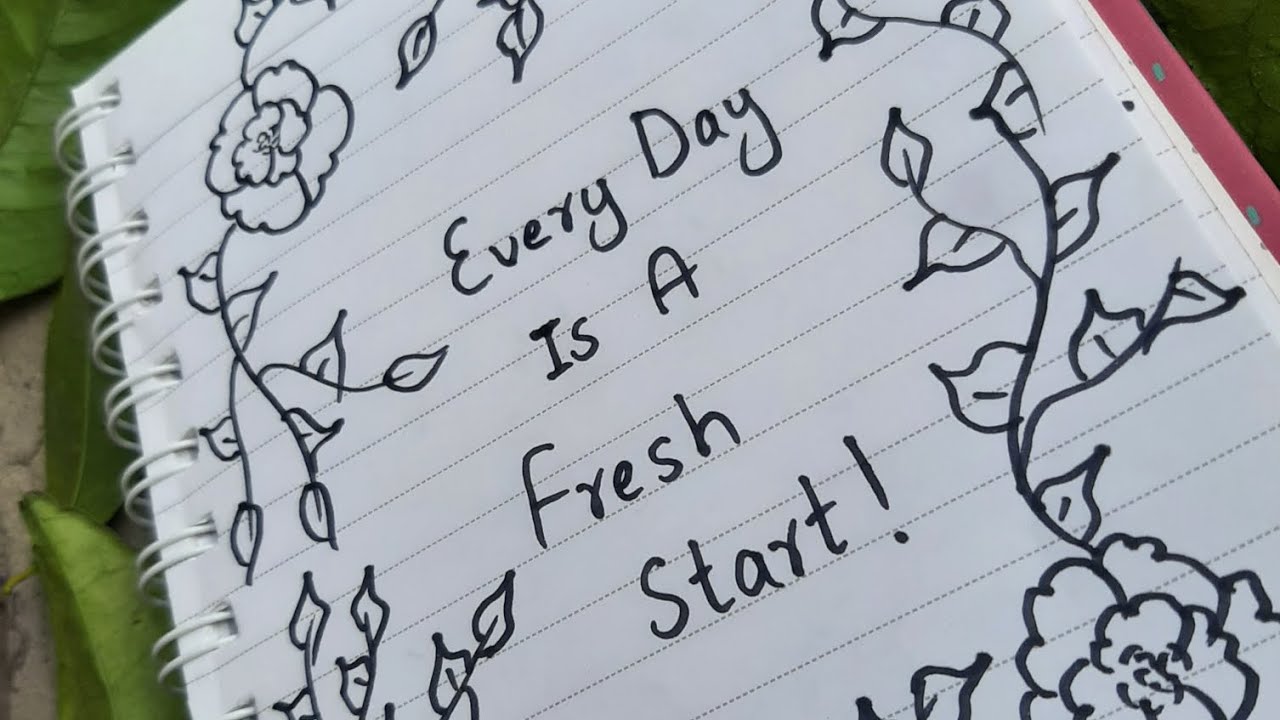 Every Day
Is A
Fresh
Start!